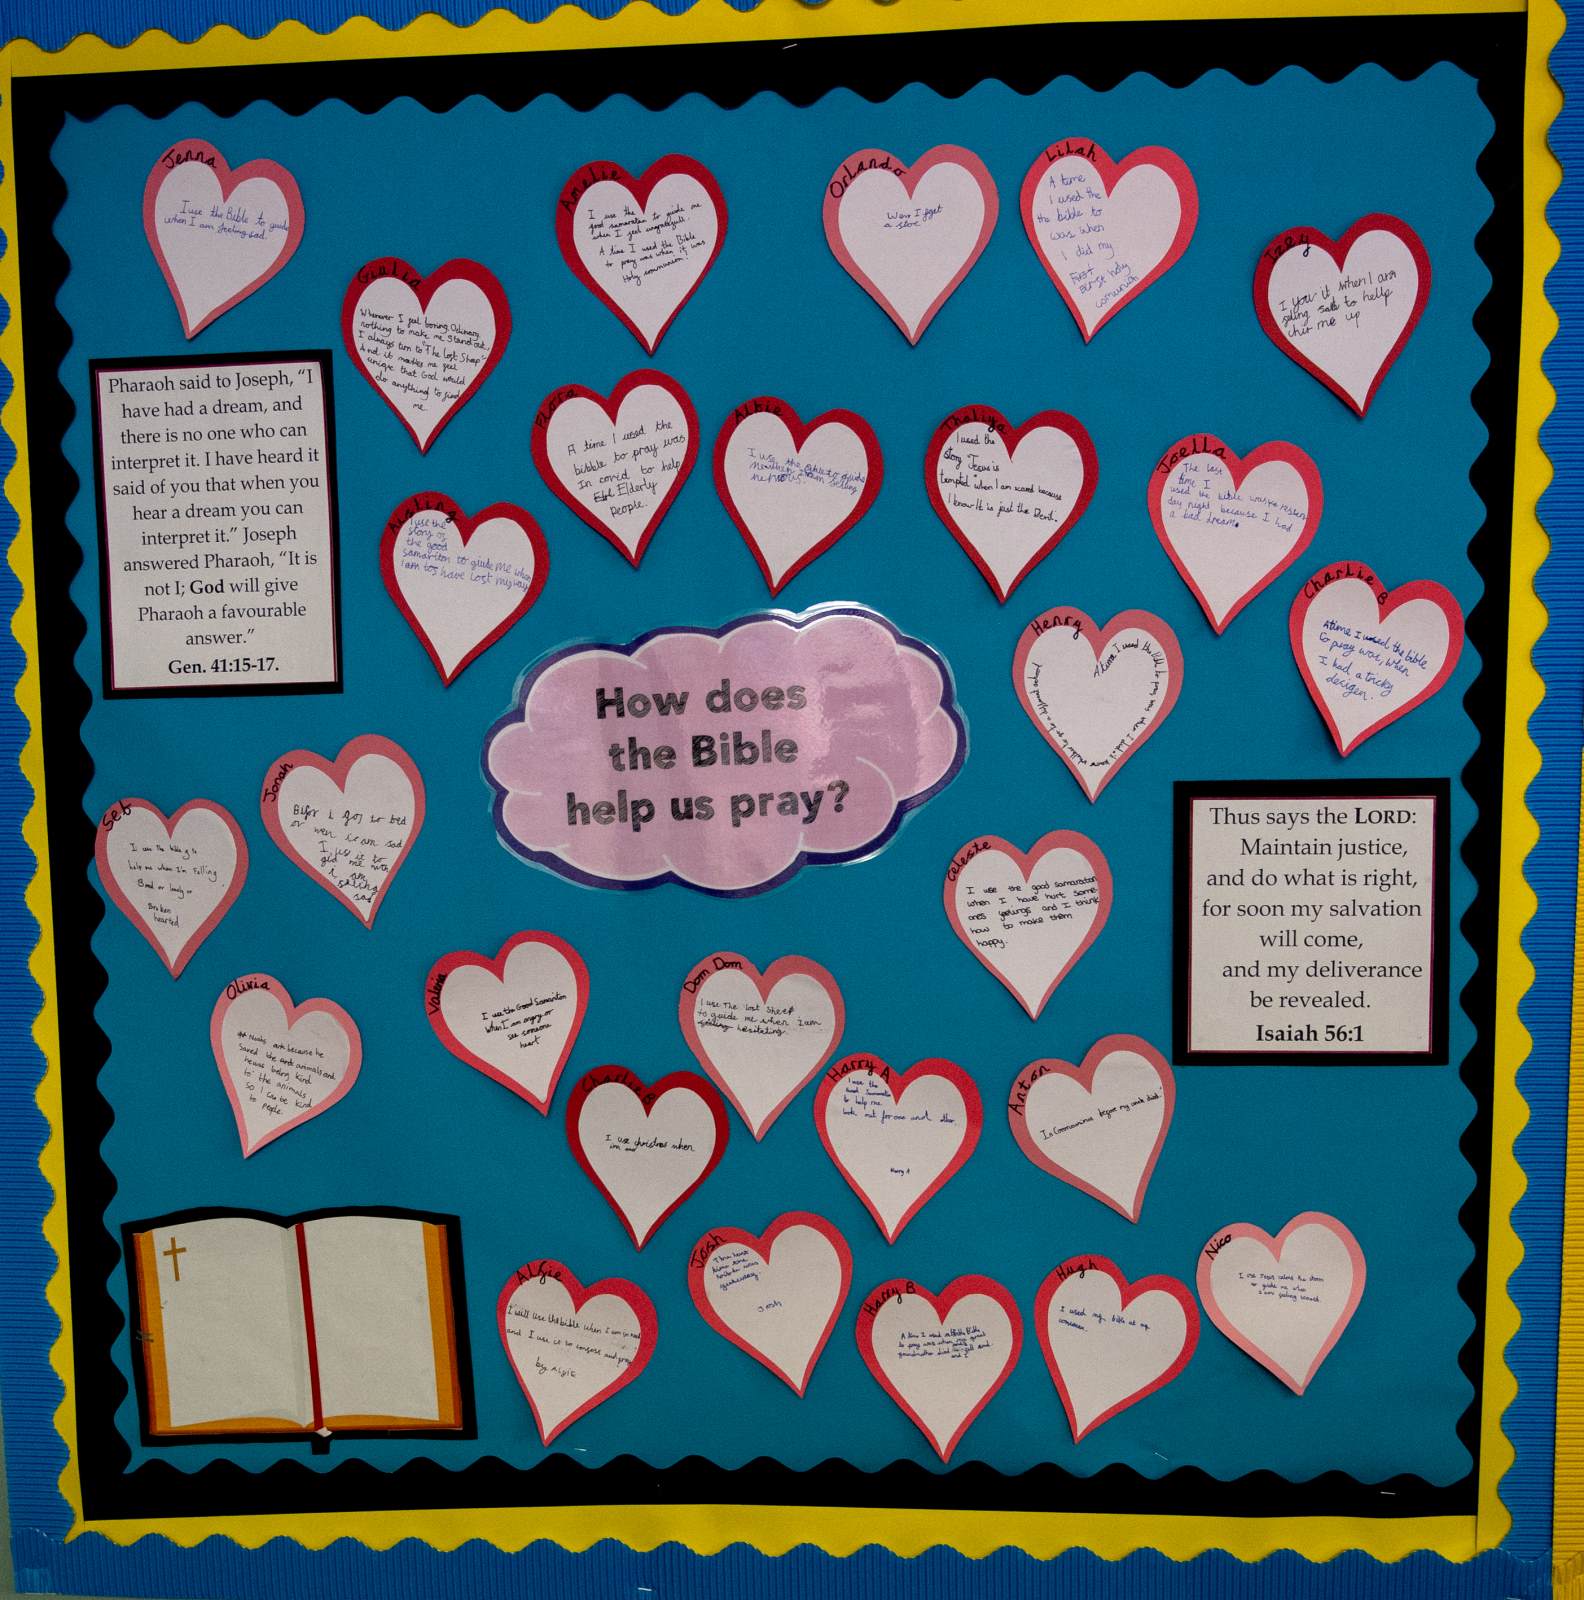 Jenna
I use the Bible to guide
when I am feeling sad.
Giulia
Whenever I feel boring, Ordinary,
nothing to make me stand out,
I always turn to "The lost Sheep"
And it makes me feel
unique that God would
do anything to find
me
Amelie
I use the
good samaratan to guide me
when I feel ungrateful.
A time I used the Bible
to pray was when it was
Holy communion!
Orlando
a
Lilah
A time
I used the
the bible to
was when
I did my
First
holy
Izzy
I when I am
to help
me up
Pharaoh said to Joseph, "I
have had a dream, and
there is no one who can
interpret it. I have heard it
said of you that when you
hear a dream you can
interpret it." Joseph
answered Pharaoh, "It is
not I; God will give
Pharaoh a favourable
answer."
Gen. 41:15-17.
Flora
A time I used the
bibble to pray was
In covid to help
Elderly
People.
Albie
I use the to guide
when I am
nervous.
Thaliya
I used the
story "Jesus is
tempted" when I am scared because
I know It is just the Devil.
Joella
The last
time I
used the bible was
day night because I had
a bad dream.
Aisling
I use the
story of
the good
samariton to guide me when
I am have lost my way
Charlie B
A time I used the bible
to pray was, when
I had a tricky
decigen.
Henry
A time I used the Bible to pray was when I
to go to a different school
How does
the Bible
help us pray?
Seb
I use the bible to
help me when I'm Falling
Baad or lonely or
Broken
hearted
Jonah
Bifor I go to bed
or wen I am sad
I it to
gid me
I am
sad
Thus says the LORD:
Maintain justice,
and do what is right,
for soon my salvation
will come,
and my deliverance
be revealed.
Isaiah 56:1
Celeste
I use the good samaraton
when I have hurt some-
one's feelings and I think
how to make them
happy.
Olivia
Noahs ark because he
saved the animals and
he was being kind
to the animals
so I can be kind
to people.
Valeria
I use the Good Samariton
When I am angry or
see someone
heart
Dom Dom
I use The lost sheep
to guide me when I am
hesitating.
Charlie B
I use christmas when
im
Harry A
I use the
Good Samaritan
to help me
look out for one and other.
Harry A
Anton
In Coronavirus my died.
Alfie
I will use the bible when I am
and I use it to and pray
by Alfie
Josh
The last
time
was
yesterday.
Josh
Harry B
A time I used the Bible
to pray was when my great
grandmother died
Hugh
I used my bible at my
Nico
I use Jesus calms the storm
to guide me when
I am feeling scared.